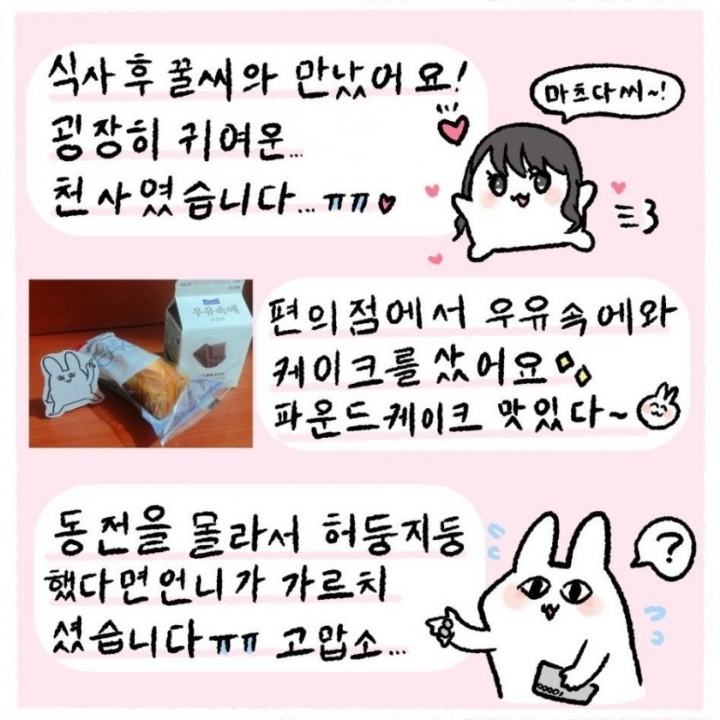 식사 후 꿀씨와 만났어요!
굉장히 귀여운...
천사였습니다... ㅠㅠ
마츠다 씨~!
우유속에
편의점에서 우유속에와
케이크를 샀어요
파운드케이크 맛있다~
동전을 몰라서 허둥지둥
했다면 언니가 가르치
셨습니다 ㅠㅠ 고맙소...
?